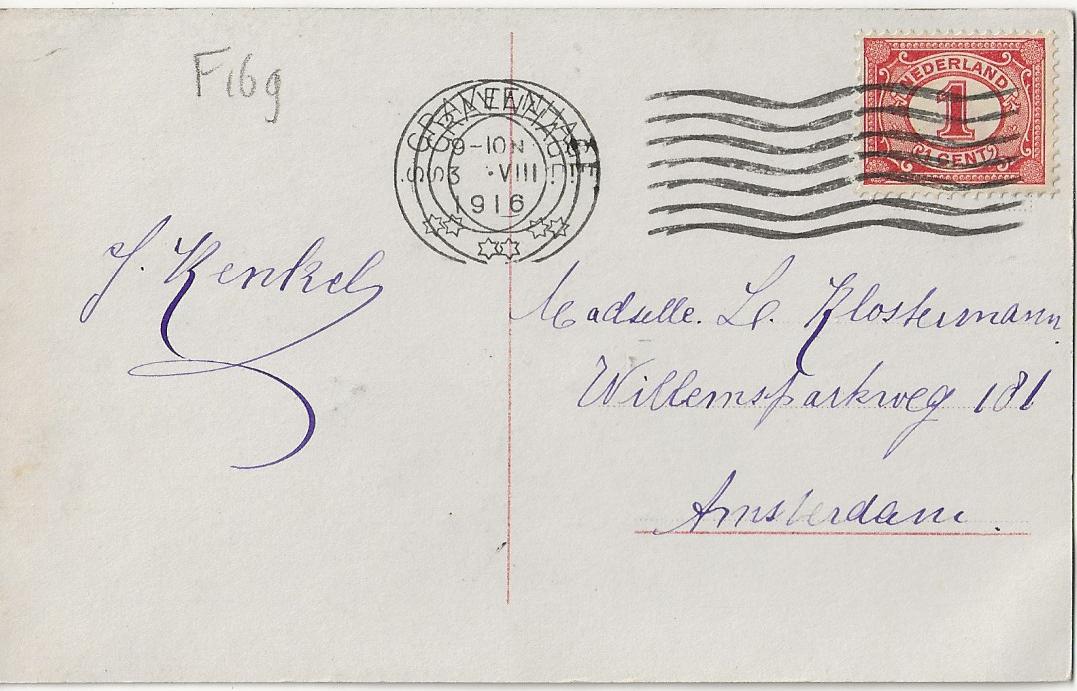 F16g
'S GRAVENHAGE
9-10N
3 .VIII
1916
NEDERLAND
1
1 CENT
J. Kenkel
Madselle. L. Klostermann
Willemsparkweg 181
Amsterdam.